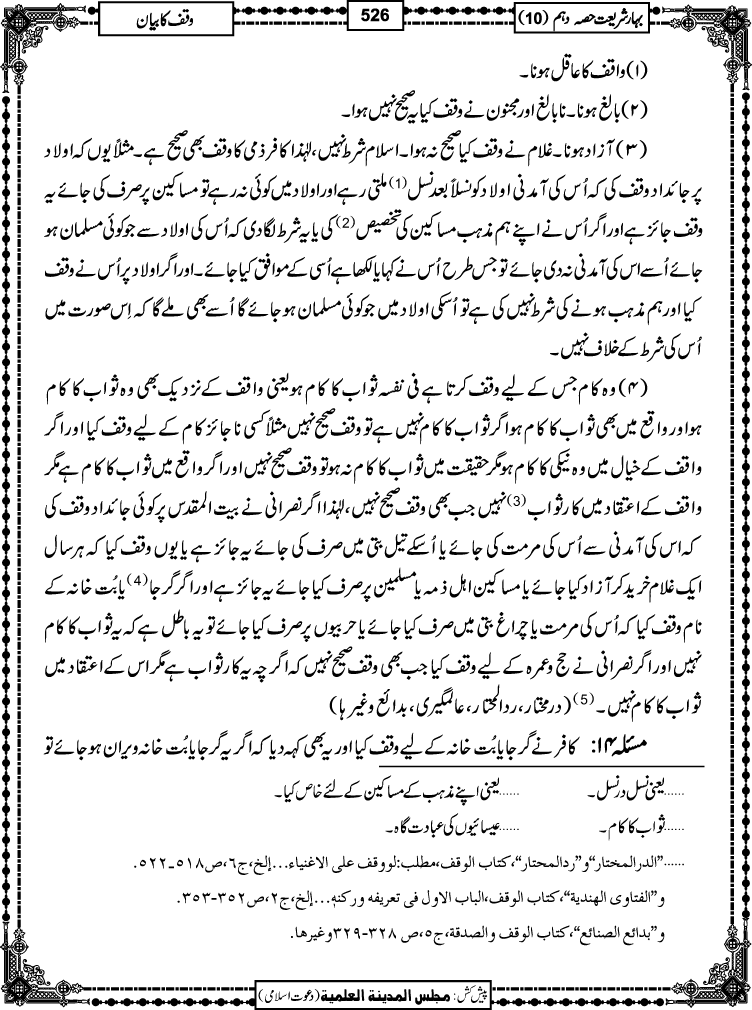 بہارِشریعت حصہ دہم (10) 526 وقف کا بیان
(۱) واقف کا عاقل ہونا۔
(۲) بالغ ہونا۔ نابالغ اور مجنون نے وقف کیا یہ صحیح نہیں ہوا۔
(۳) آزاد ہونا۔ غلام نے وقف کیا صحیح نہ ہوا۔ اسلام شرط نہیں، لہٰذا کافر ذمی کا وقف بھی صحیح ہے۔ مثلاً یوں کہ اولاد
پر جائداد وقف کی کہ اُس کی آمدنی اولاد کو نسلاً بعد نسل(1) ملتی رہے اور اولاد میں کوئی نہ رہے تو مساکین پر صرف کی جائے یہ
وقف جائز ہے اور اگر اُس نے اپنے ہم مذہب مساکین کی تخصیص(2) کی یا یہ شرط لگادی کہ اُس کی اولاد سے جو کوئی مسلمان ہو
جائے اُسے اس کی آمدنی نہ دی جائے تو جس طرح اُس نے کہا یا لکھا ہے اُسی کے موافق کیا جائے۔ اور اگر اولاد پر اُس نے وقف
کیا اور ہم مذہب ہونے کی شرط نہیں کی ہے تو اُسکی اولاد میں جو کوئی مسلمان ہو جائے گا اُسے بھی ملے گا کہ اِس صورت میں
اُس کی شرط کے خلاف نہیں۔
(۴) وہ کام جس کے لیے وقف کرتا ہے فی نفسہ ثواب کا کام ہو یعنی واقف کے نزدیک بھی وہ ثواب کا کام
ہو اور واقع میں بھی ثواب کا کام ہو اگر ثواب کا کام نہیں ہے تو وقف صحیح نہیں مثلاً کسی ناجائز کام کے لیے وقف کیا اور اگر
واقف کے خیال میں وہ نیکی کا کام ہو مگر حقیقت میں ثواب کا کام نہ ہو تو وقف صحیح نہیں اور اگر واقع میں ثواب کا کام ہے مگر
واقف کے اعتقاد میں کارِ ثواب(3) نہیں جب بھی وقف صحیح نہیں، لہٰذا اگر نصرانی نے بیت المقدس پر کوئی جائداد وقف کی
کہ اس کی آمدنی سے اُس کی مرمت کی جائے یا اُسکے تیل بتی میں صرف کی جائے یہ جائز ہے یا یوں وقف کیا کہ ہر سال
ایک غلام خرید کر آزاد کیا جائے یا مساکین اہل ذمہ یا مسلمین پر صرف کیا جائے یہ جائز ہے اور اگر گرجا(4) یا بُت خانہ کے
نام وقف کیا کہ اُس کی مرمت یا چراغ بتی میں صرف کیا جائے یا حربیوں پر صرف کیا جائے تو یہ باطل ہے کہ یہ ثواب کا کام
نہیں اور اگر نصرانی نے حج وعمرہ کے لیے وقف کیا جب بھی وقف صحیح نہیں کہ اگرچہ یہ کارِ ثواب ہے مگر اس کے اعتقاد میں
ثواب کا کام نہیں۔(5) (درمختار، ردالمحتار، عالمگیری، بدائع وغیرہا)
مسئلہ ۱۴: کافر نے گرجا یا بُت خانہ کے لیے وقف کیا اور یہ بھی کہہ دیا کہ اگر یہ گرجا یا بُت خانہ ویران ہو جائے تو
......یعنی نسل در نسل۔ ......یعنی اپنے مذہب کے مساکین کے لئے خاص کیا۔
......ثواب کا کام۔ ......عیسائیوں کی عبادت گاہ۔
......"الدرالمختار" و "ردالمحتار"، کتاب الوقف، مطلب: لو وقف علی الاغنیاء...إلخ، ج٦، ص٥١٨-٥٢٢.
و "الفتاوی الھندیة"، کتاب الوقف، الباب الاول فی تعریفہ ورکنہ...إلخ، ج٢، ص٣٥٢-٣٥٣.
و "بدائع الصنائع"، کتاب الوقف والصدقة، ج٥، ص ٣٢٨-٣٢٩ وغیرھا.
پیش کش: مجلس المدینة العلمیة (دعوت اسلامی)